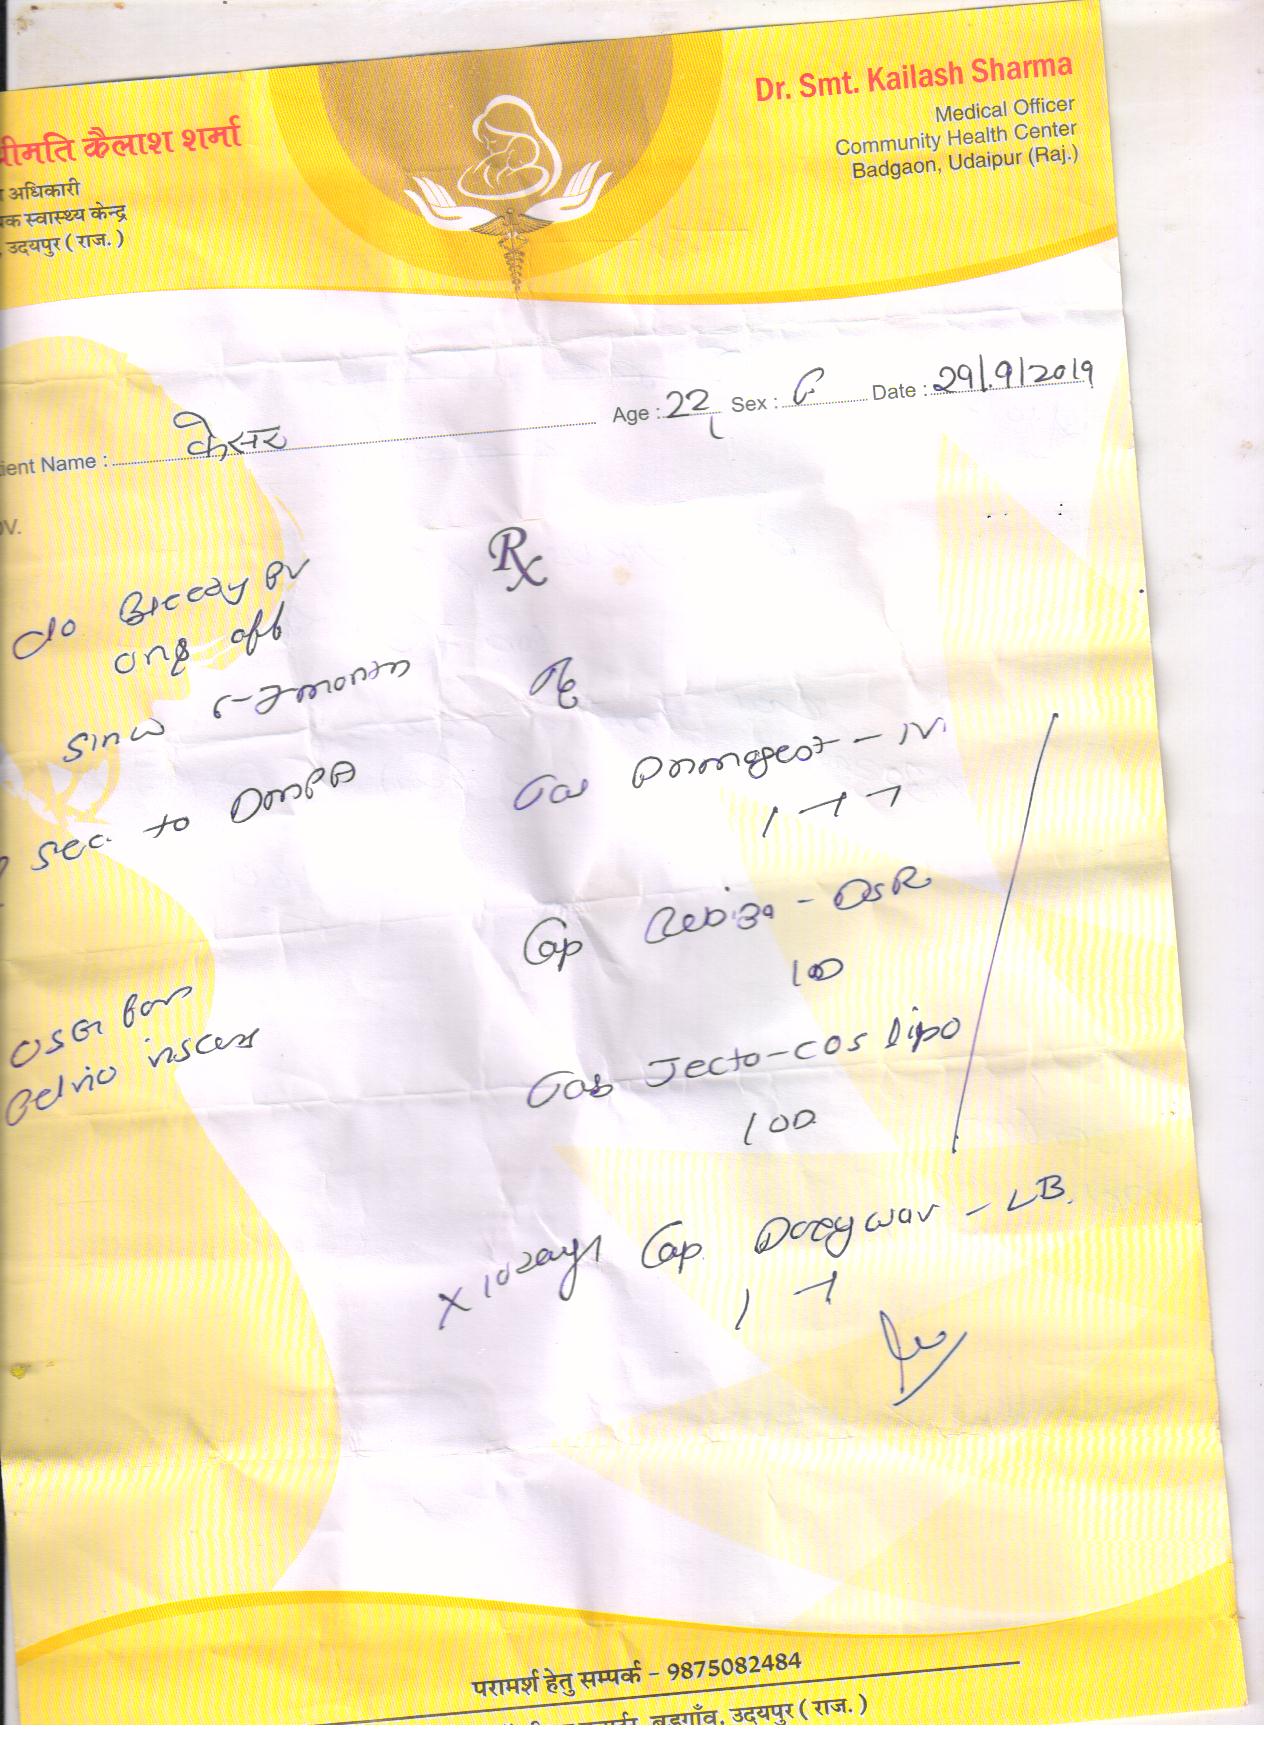 रीमति कैलाश शर्मा
अधिकारी
यक स्वास्थ्य केन्द्र
, उदयपुर ( राज. )
Dr. Smt. Kailash Sharma
Medical Officer
Community Health Center
Badgaon, Udaipur (Raj.)
ient Name : केसर Age : 22 Sex : F Date : 29/.9/2019
OV.
Rx
c/o Bleeding PV
on & off
since 6-7 month
? sec. to DMPA
USG for
Pelvic viscera
Rx
Tab - IV
1 - 1 - 1
Cap Rebiza - DSR
1 OD
Tab Jecto-cos lipo
1 OD
x 10 days Cap. Doxywav - LB.
1 - 1
परामर्श हेतु सम्पर्क – 9875082484
बड़गाँव, उदयपुर ( राज. )